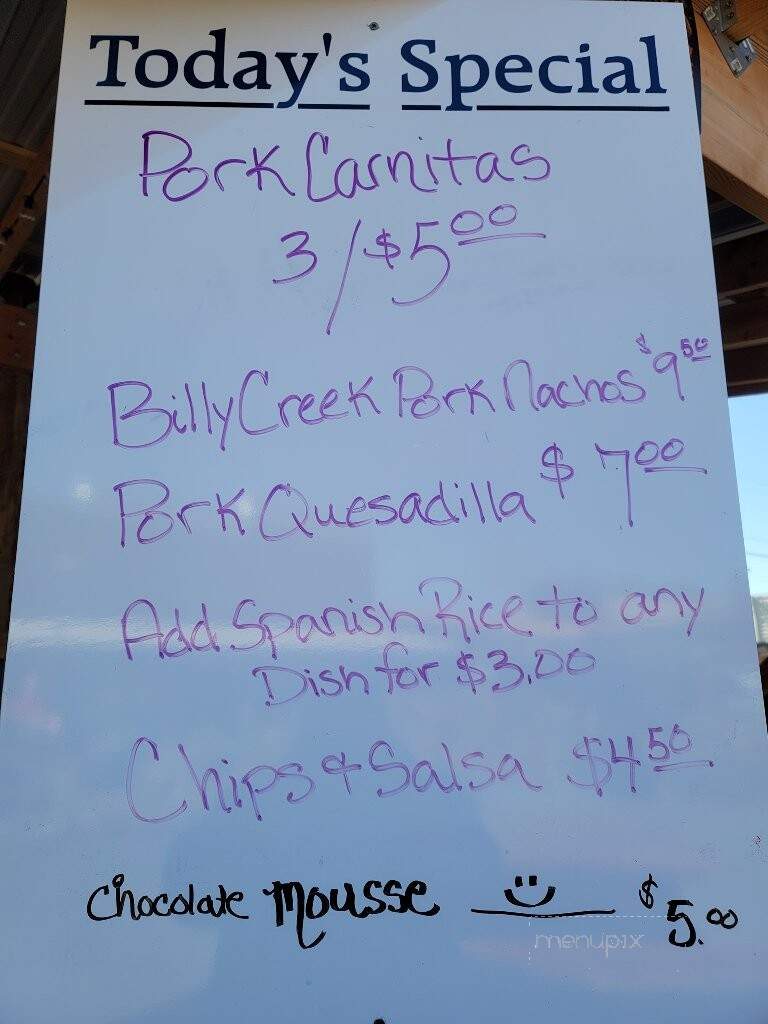 Today's Special
Pork Carnitas
3/$5.00
Billy Creek Pork Nachos $9.50
Pork Quesadilla $7.00
Add Spanish Rice to any
Dish for $3.00
Chips & Salsa $4.50
Chocolate Mousse $5.00
menupix